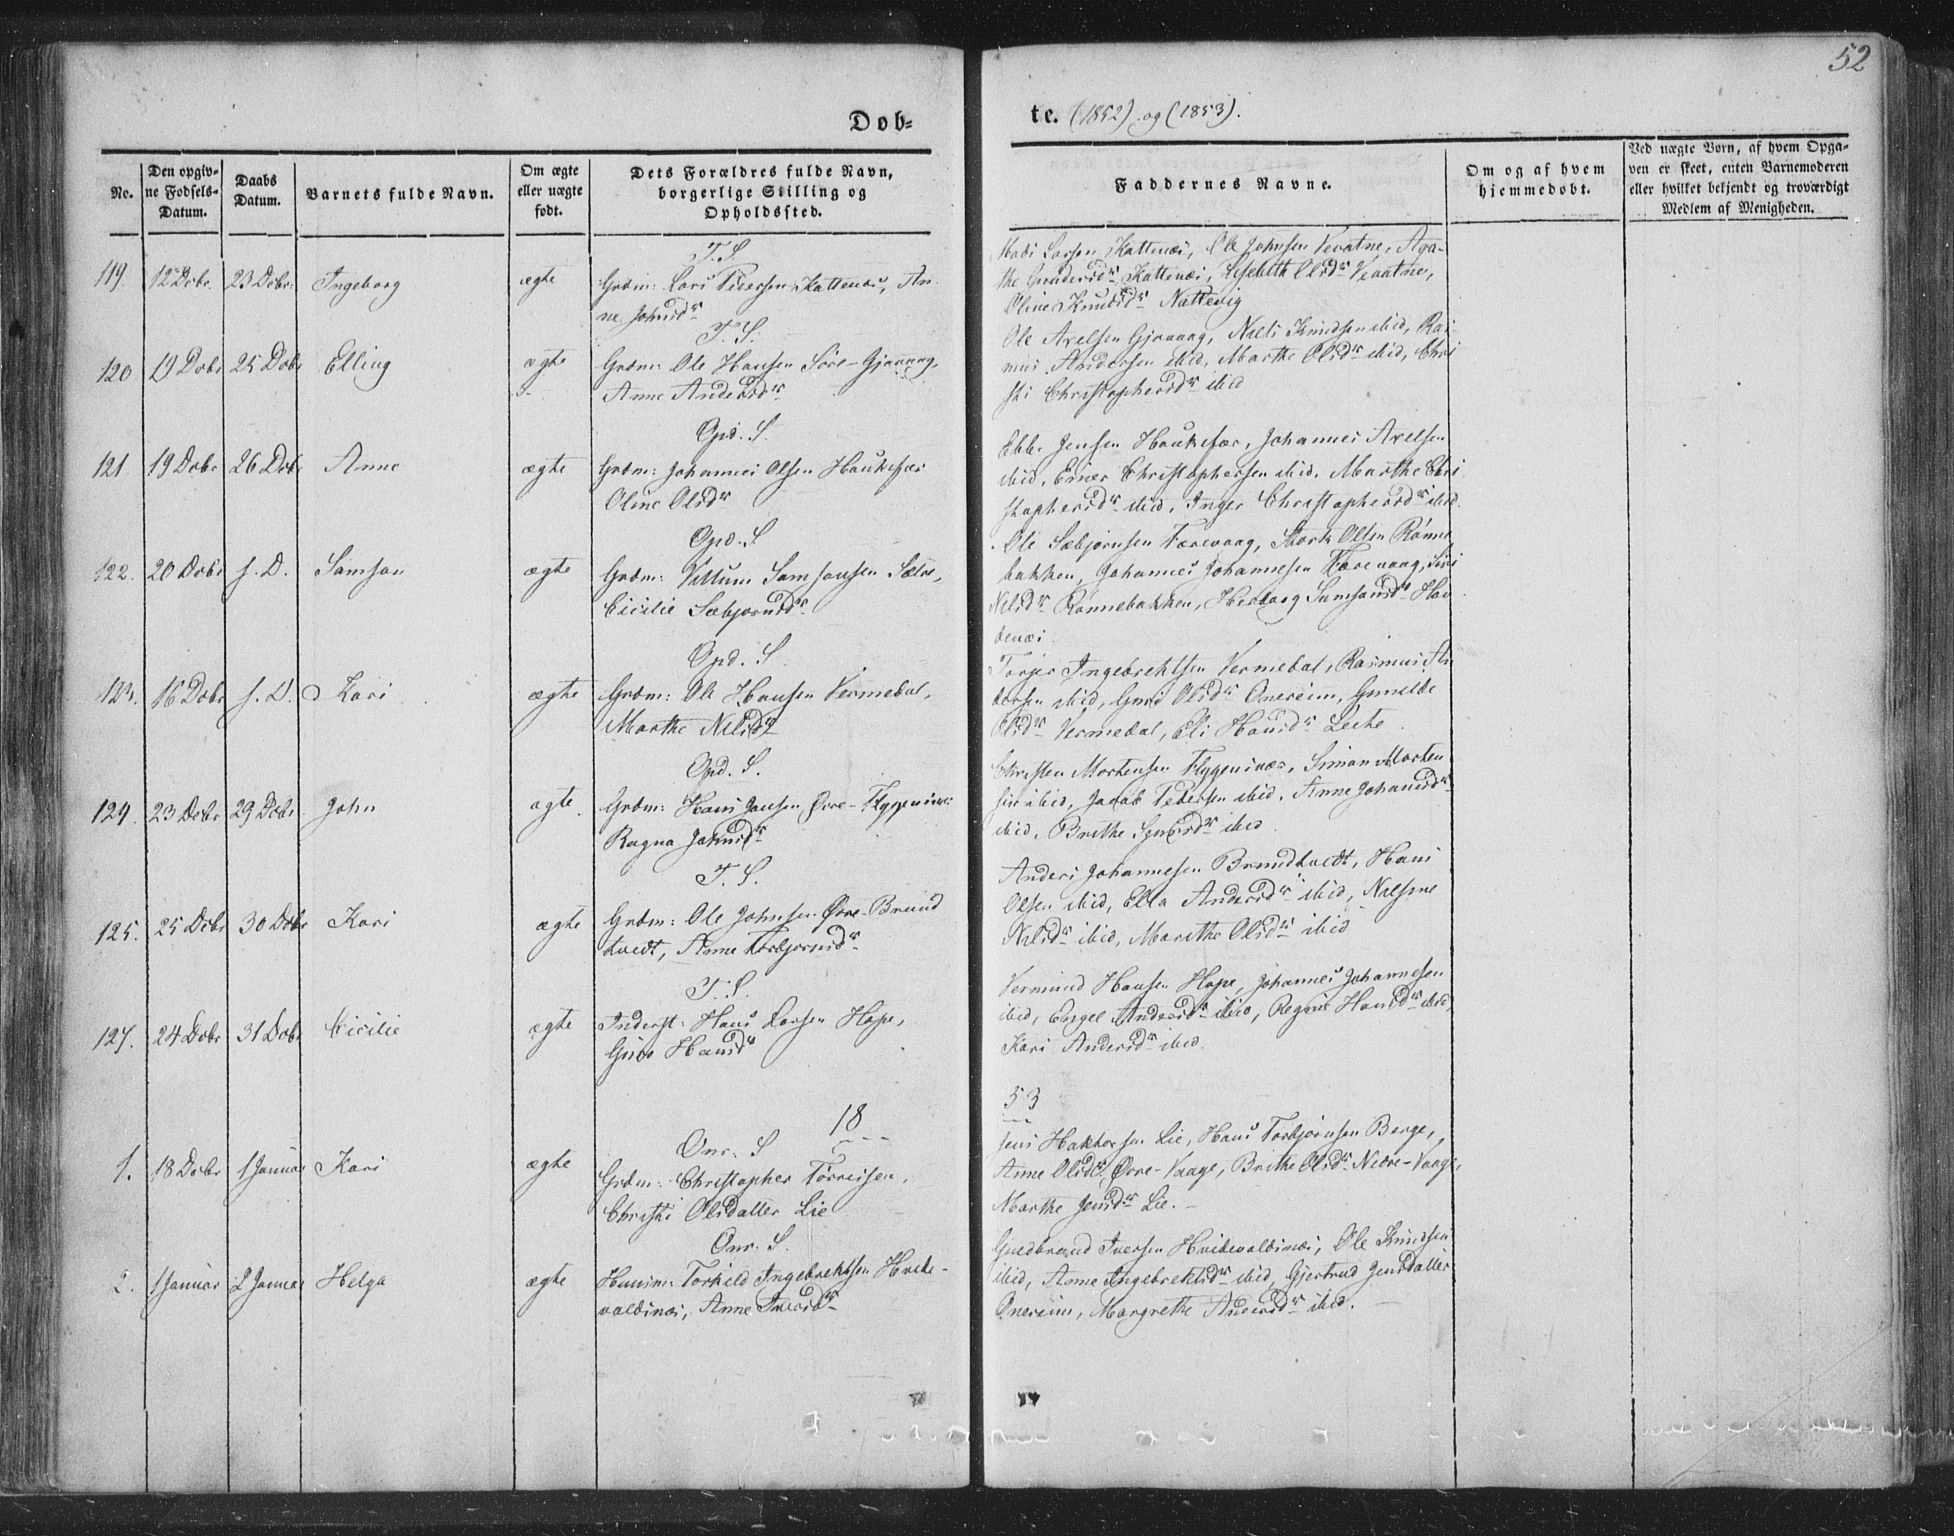 52
Døb-
te. (1852) og (1853).
No.
Den opgiv-
ne Fødsels-
Datum.
Daabs
Datum.
Barnets fulde Navn.
Om ægte
eller uægte
født.
Dets Forældres fulde Navn,
borgerlige Stilling og
Opholdssted.
Faddernes Navne.
Om og af hvem
hjemmedøbt.
Ved uægte Børn, af hvem Opga-
ven er skeet, enten Barnemoderen
eller hvilket bekjendt og troværdigt
Medlem af Menigheden.
T. S.
119. 12 Dcbr. 23 Dcbr. Ingeborg ægte Grdm: Lars Pedersen Kattenæs, An-
ne Johnsdr
Mads Larsen Kattenæs, Ole Johnsen Vevatne, Aga-
the Kattenæs, Lisebeth Olsdr Vevatne,
Oline Knutsdr Nattevig
T. S.
120 19 Dcbr 25 Dcbr Elling ægte Grdm: Ole Hansen Søre-Gjøvaag,
Anne Andersdr
Ole Axelsen Gjøvaag, Niels Knudsen ibid, Ras-
mus Andersen ibid, Marthe Olsdr ibid, Chri
sti Christophersdr ibid
Opd. S.
121. 19 Dcbr 26 Dcbr Anne ægte Grdm: Johannes Olsen Haukefær
Oline Olsdr
Ebbe Jensen Haukefær, Johannes Axelsen
ibid, Einer Christophersen ibid, Marthe Chri
stophersdr ibid, Inger Christophersdr ibid.
Opd. S
122. 20 Dcbr s. D. Samson ægte Grdm: Villum Samsonsen Sætre,
Cicilie Sæbjørnsdr
Ole Sæbjørnsen Færevaag, Stork Olsen Rønne
bakken, Johannes Johannesen Færevaag, Siri
Nilsdr Rønnebakken, Herborg Samsonsdr Hav
denæs
Opd. S
123. 16 Dcbr s. D. Kari ægte Grdm: Ole Hansen Vermedal,
Marthe Nilsdr
Torjer Ingebrektsen Vermedal, Rasmus An
dersen ibid, Guri Olsdr Onereim, Gunilde
Olsdr Vermedal, Eli Hansdr Leite
Opd. S.
124. 23 Dcbr 29 Dcbr John ægte. Grdm: Hans Jansen Øvre-Flygenings
Ragna Johnsdr
Christen Mortensen Flygeninæs, Simon Morten
sen ibid, Jacob Pedersen ibid, Anne Johansdr
ibid, Brithe ibid.
T. S.
125. 25 Dcbr 30 Dcbr Kari ægte Grdm: Ole Johnsen Øvre-Brund
tvedt, Anne Torbjørnsdr
Anders Johannesen Brundtvedt, Hans
Olsen ibid, Ella Andersdr ibid, Nilsine
Nilsdr ibid, Marithe Olsdr ibid
T. S.
127. 24 Dcbr 31 Dcbr Cicilie ægte Inderst: Hans Larsen Hope,
Guro Hansdr
Vermund Hansen Hope, Johannes Johannesen
ibid, Engel Andersdr ibid, Regine Hansdr ibid,
Kari Andersdr ibid.
18
53
Onr. S
1. 18 Dcbr 1 Januar Kari ægte Grdm: Christopher Torreisen,
Christi Olsdatter Lie
Jens Haktorsen Lie, Hans Torbjørnsen Berge,
Anne Olsdr Øvre-Vaage, Brithe Olsdr Nedre-Vaage,
Marthe Jensdr Lie.
Onr. S.
2. 1 Januar 2 Januar Helga ægte Huusm: Torkild Ingebrektsen Hvide-
valdsnæs, Anne Iversdr
Guldbrand Iversen Hvidevaldsnæs, Ole Knudsen
ibid, Anne Ingebrektsdr ibid, Gjertrud Jensdatter
Onereim, Margrethe Andersdr ibid.